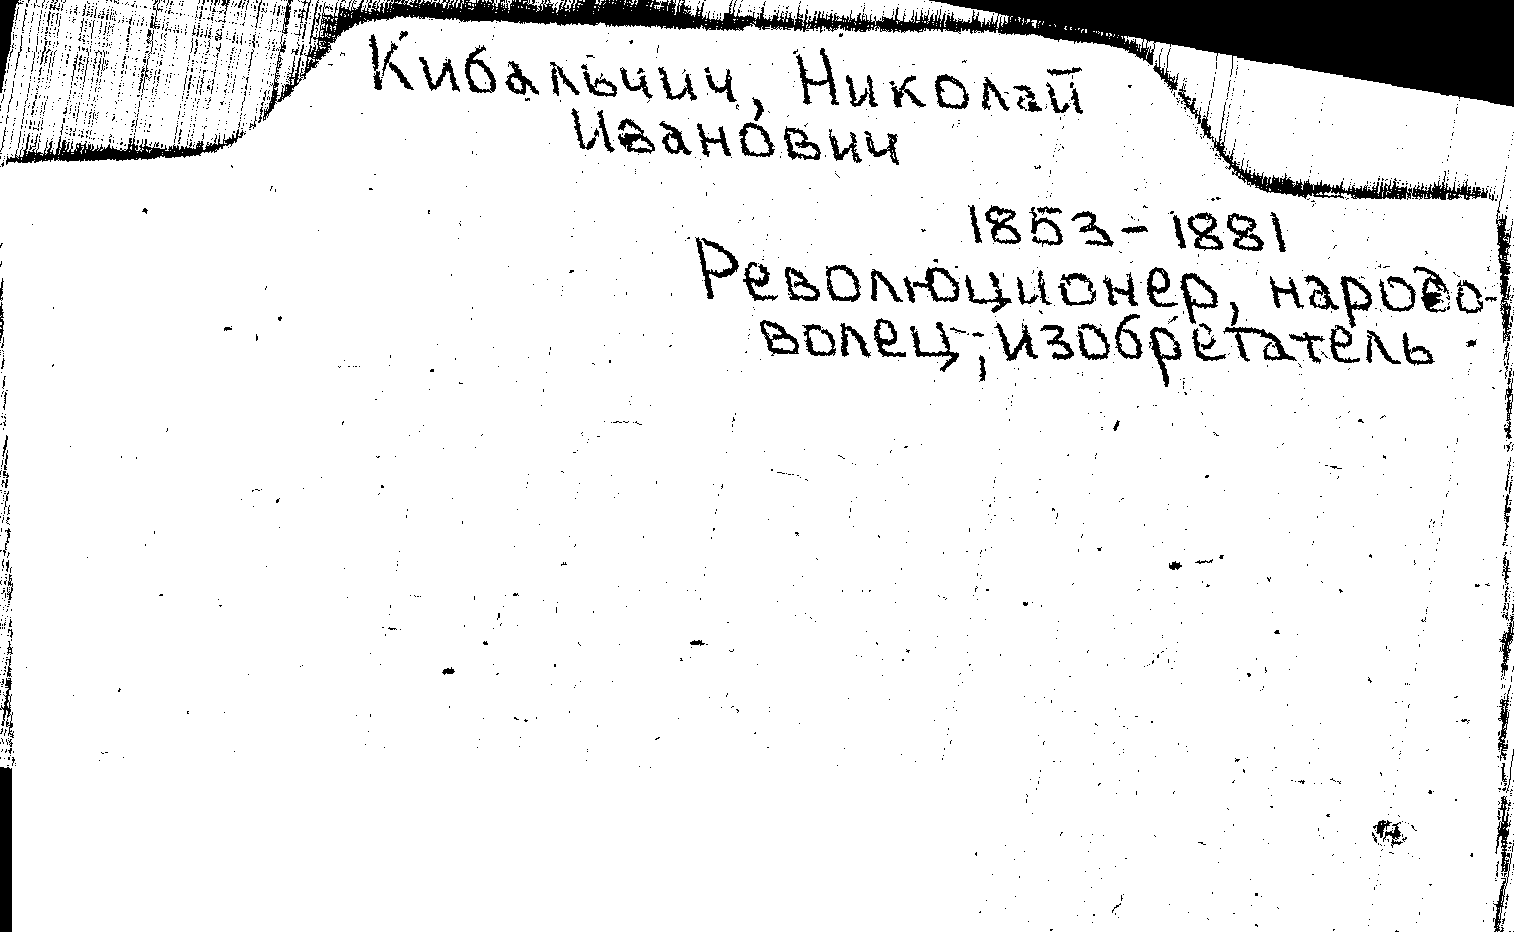 Кибальчич, Николай
Иванович
1853-1881
Революционер, народо-
волец, изобретатель